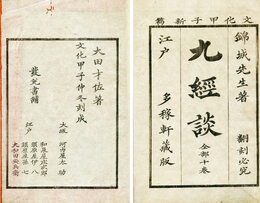 文化甲子新鐫
錦城先生著
翻刻必究
九經談
全部十卷
江戸
多稼軒藏版
大田才佐著
文化甲子仲冬刻成
發兌書鋪
大坂
河内屋太助
江戸
和泉屋庄次郎
須原屋伊八
須原屋孫七